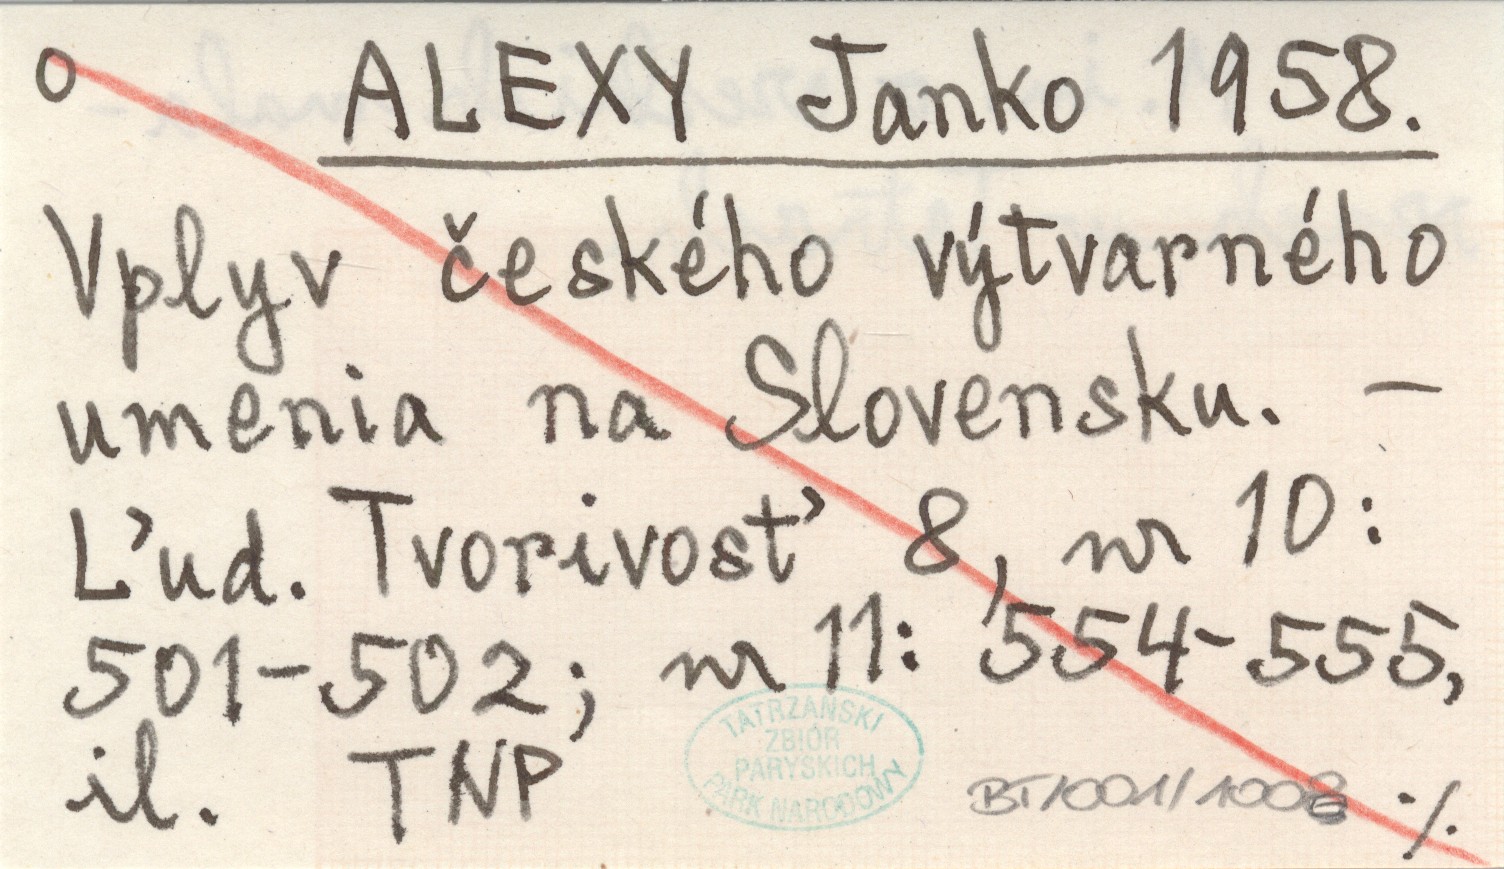 o ALEXY Janko 1958.
Vplyv českého výtvarného
umenia na Slovensku. –
Ľud. Tvorivosť 8, nr 10:
501-502; nr 11: 554-555,
il. TNP
TATRZAŃSKI
ZBIÓR
PARYSKICH
PARK NARODOWY
BT/001/1008 ·/.